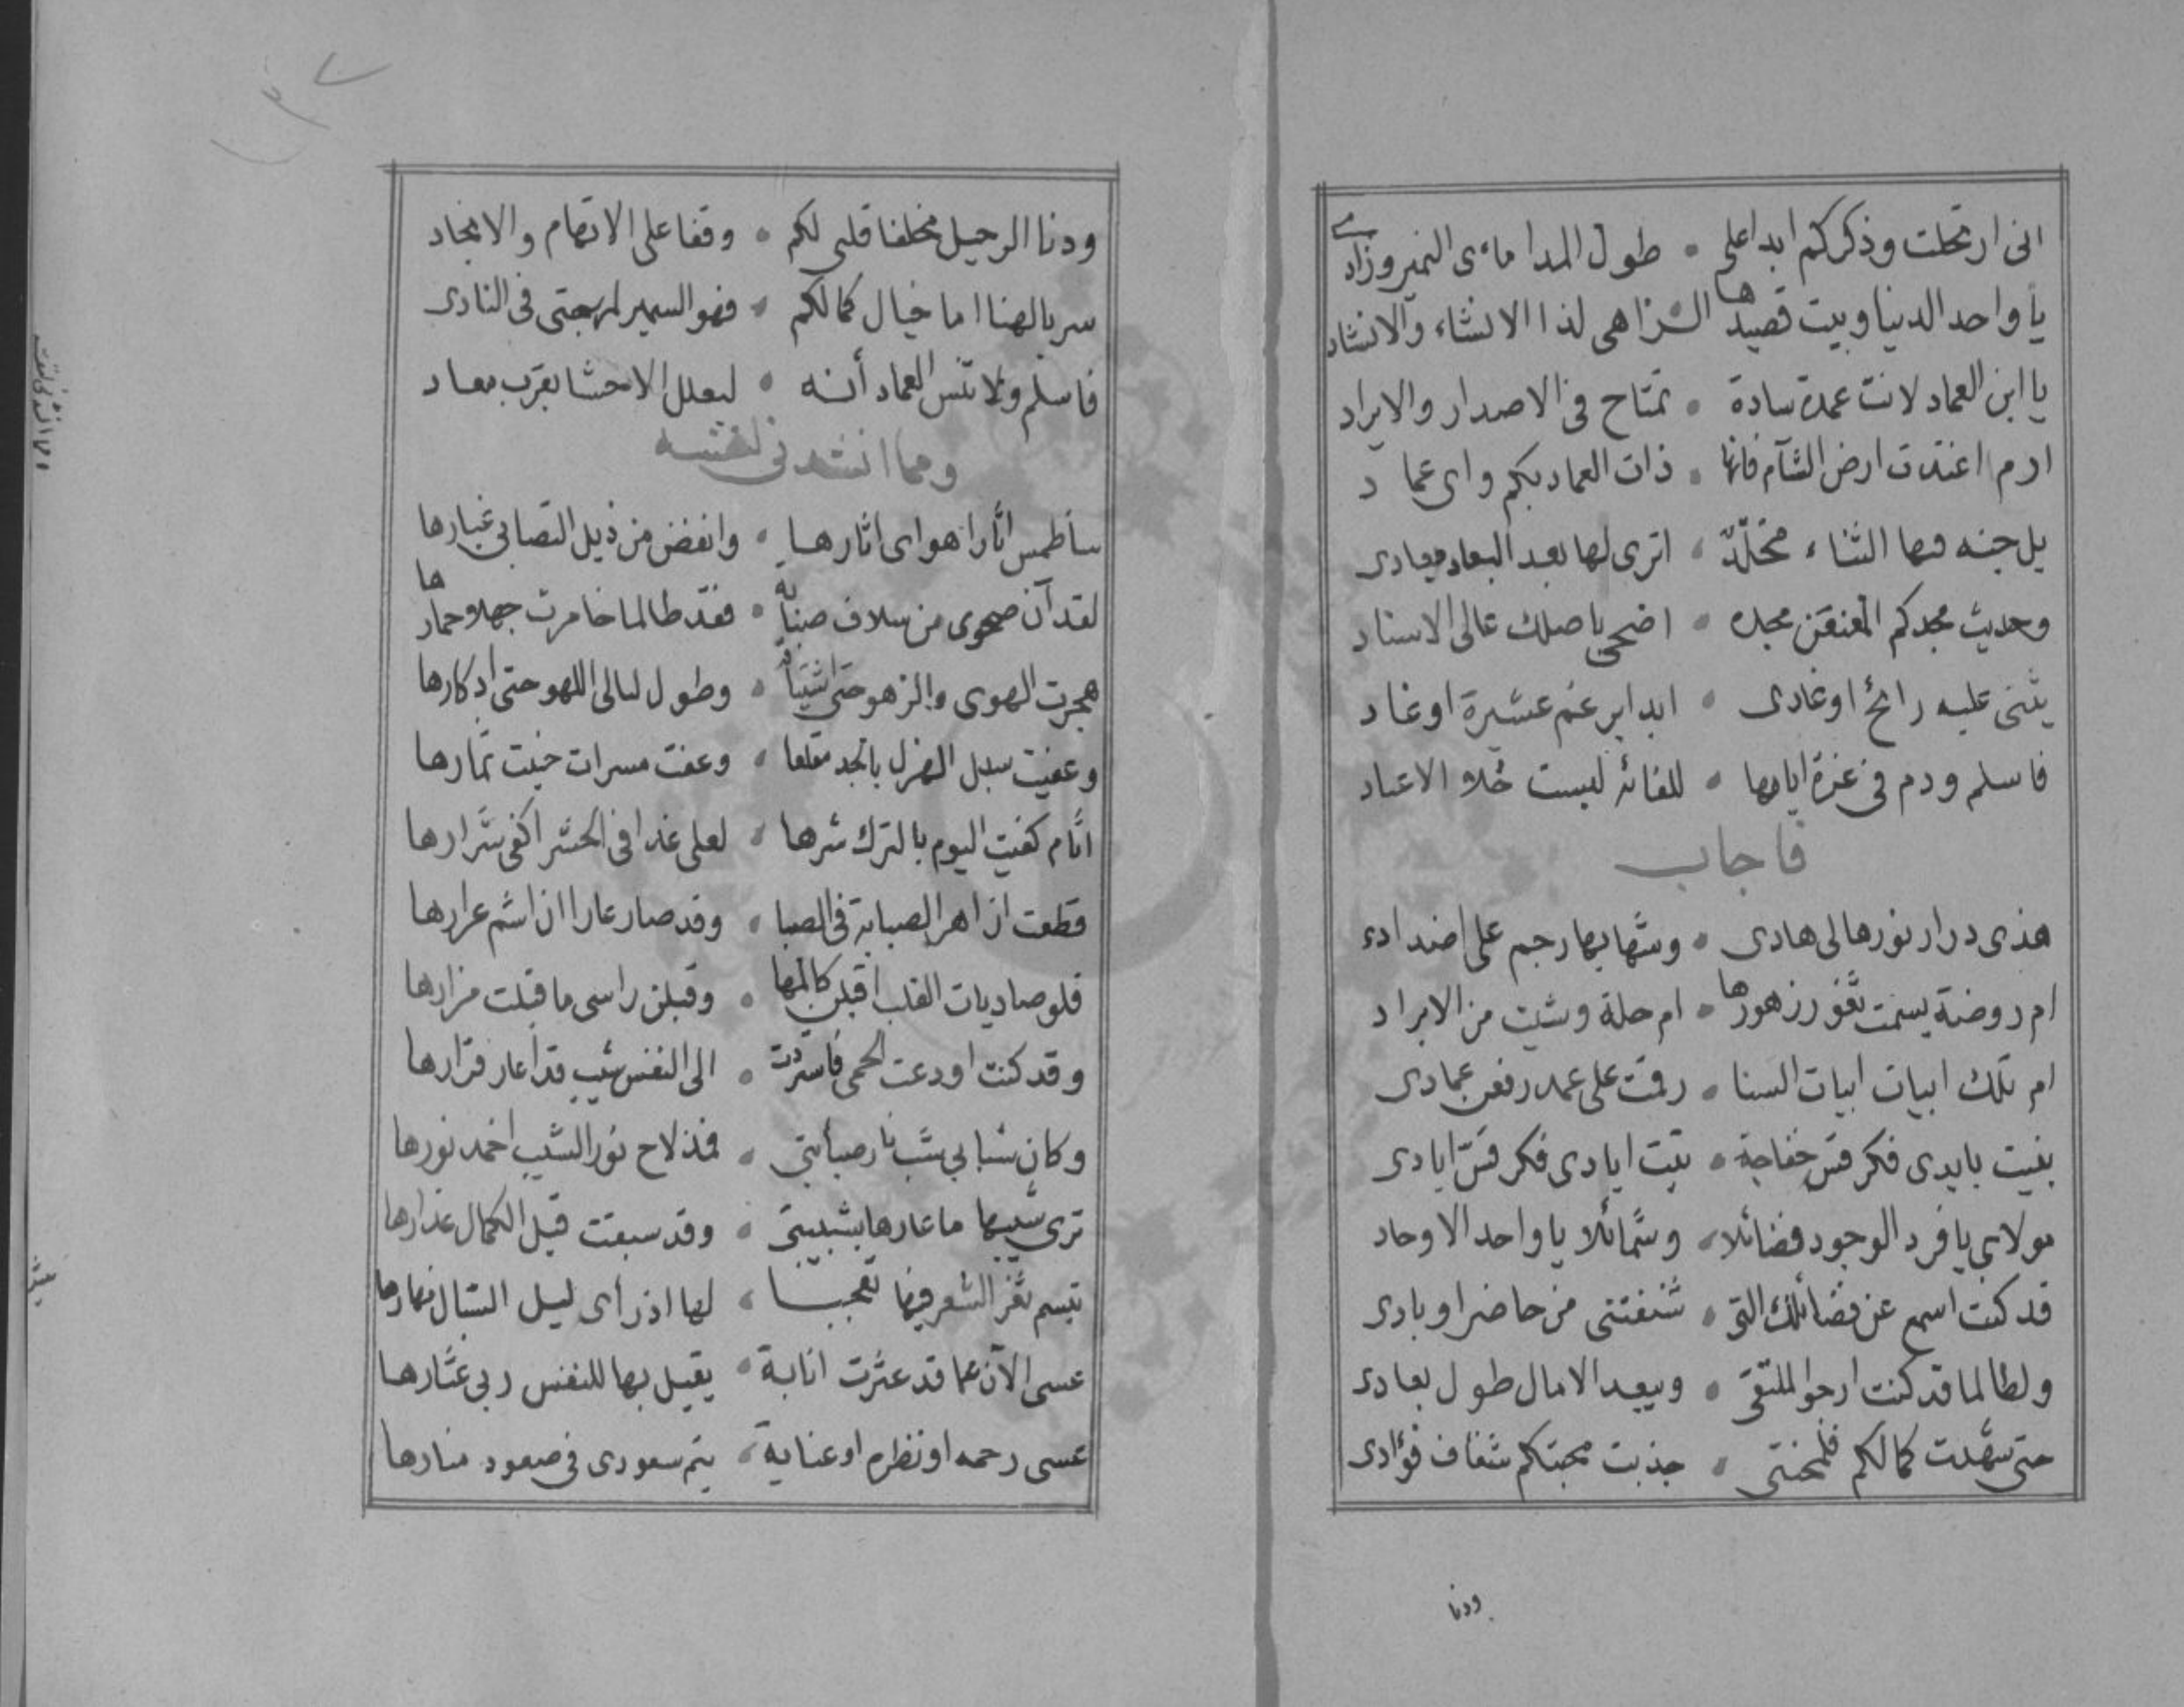 انى ارتحلت وذكركم ابدا على • طول المدا ماءى النمير وزادى
يا واحد الدنيا وبيت قصيدها الزاهى لذا الانشاء والانشاد
يا ابن العماد لانت عمدة سادة • تمتاح فى الاصدار والايراد
ارم اغتدت ارض الشآم فانها • ذات العماد بكم واى عماد
بل جنه فيها الثناء مخلّدٌ • اترى لها بعد البعاد معادى
وحديث مجدكم المعنعن مجده • اضحى باصلك عالى الاسناد
يثنى عليه رائح اوغادى • ابدا برغم عشيرة اوغاد
فاسلم ودم فى غرة ايامها • للقائه لبست حُلا الاعياد
فاجاب
هذى درار نورها لى هادى • وشهابها رجم على اضدادى
ام روضة بسمت ثغور زهورها • ام حلة وشيت من الابراد
ام تلك ابيات ابيات السنا • رقمت على عمد رفعن عمادى
بنيت بايدى فكر قس خفاجة • بتت ايادى فكر قسّ ايادى
مولاى يا فرد الوجود فضائلا • وشمائلا يا واحد الاوحاد
قد كنت اسمع عن فضائلك التى • شنفتنى من حاضر اوبادى
ولطالما قد كنت ارجو الملتقى • ويبعد الامال طول بعادى
حتى شهدت كمالكم فلمحنتى • جذبت محبتكم شغاف فؤادى
ودنا
ودنا الرحيل مخلفا قلبى لكم • وقفا على الاتهام والانجاد
سر بالهنا اما خيال كمالكم • فهو السمير لمهجتى فى النادى
فاسلم ولا تنس العماد أنه • ليعلل الاحشا بقرب معاد
ومما انشدنى لنفسه
سأطمس اثارا هواى اثارها • وانفض من ذيل التصابى غبارها
لقد آن صحوى من سلاف صبابة • فقد طالما خامرت جهلا خمارها
هجرت الهوى والزهو حتى اشتياقه • وطول ليالى اللهو حتى ادكارها
وعفيت سبل الهزل بالجد مقلعا • وعفت مسرات جنيت ثمارها
اثام كفيت اليوم بالترك شرها • لعلى غدا فى الحشر اكفى شرارها
قطعت ازاهر الصبابة فى الصبا • وقد صار عارا ان اشم عرارها
فلو صاديات القلب اقبلن كالمها • وقبلن راسى ما قبلت مزارها
وقد كنت اودعت الحجى فاستردت • الى النفس شيب قد اعار قرارها
وكان شبابى شب نار صبابتى • فمذ لاح نور الشيب اخمد نورها
ترى شيبها ما عارها بشبيبتى • وقد سبقت قبل الكمال عذارها
تبسم ثغر الشعر فيها تعجبا • لها اذ رأى ليل الشبال نهارها
عسى الآن عما قد عثرت انابة • يقيل بها للنفس ربى عثارها
عسى رحمه او نظره او عناية • يتم سعودى فى صعود منارها